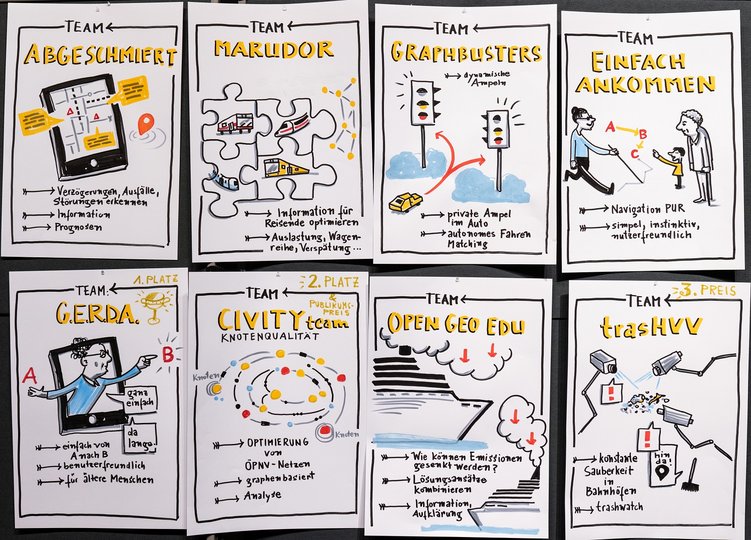 TEAM
ABGESCHMIERT
Verzögerungen, Ausfälle,
Störungen erkennen
Information
Prognosen
TEAM
MARUDOR
Information für
Reisende optimieren
Auslastung, Wagen-
reihe, Verspätung...
TEAM
GRAPHBUSTERS
dynamische
Ampeln
private Ampel
im Auto
autonomes Fahren
Matching
TEAM
EINFACH
ANKOMMEN
A
B
C
Navigation PUR
simpel, instinktiv,
nutzerfreundlich
1. PLATZ
TEAM:
G.E.R.D.A.
A
B
ganz
einfach
da
lang.
einfach von
A nach B
benutzerfreundlich
für ältere Menschen
2. PLATZ
&
PUBLIKUMS-
PREIS
TEAM
CIVITY team
KNOTENQUALITÄT
Knoten
Knoten
OPTIMIERUNG
von
ÖPNV-Netzen
graphenbasiert
Analyse
TEAM
OPEN GEO EDU
Wie können Emissionen
gesenkt werden?
Lösungsansätze
kombinieren
Information,
Aufklärung
3. PREIS
TEAM
trasHVV
!
!
hin
da!
konstante
Sauberkeit
in
Bahnhöfen
trashwatch